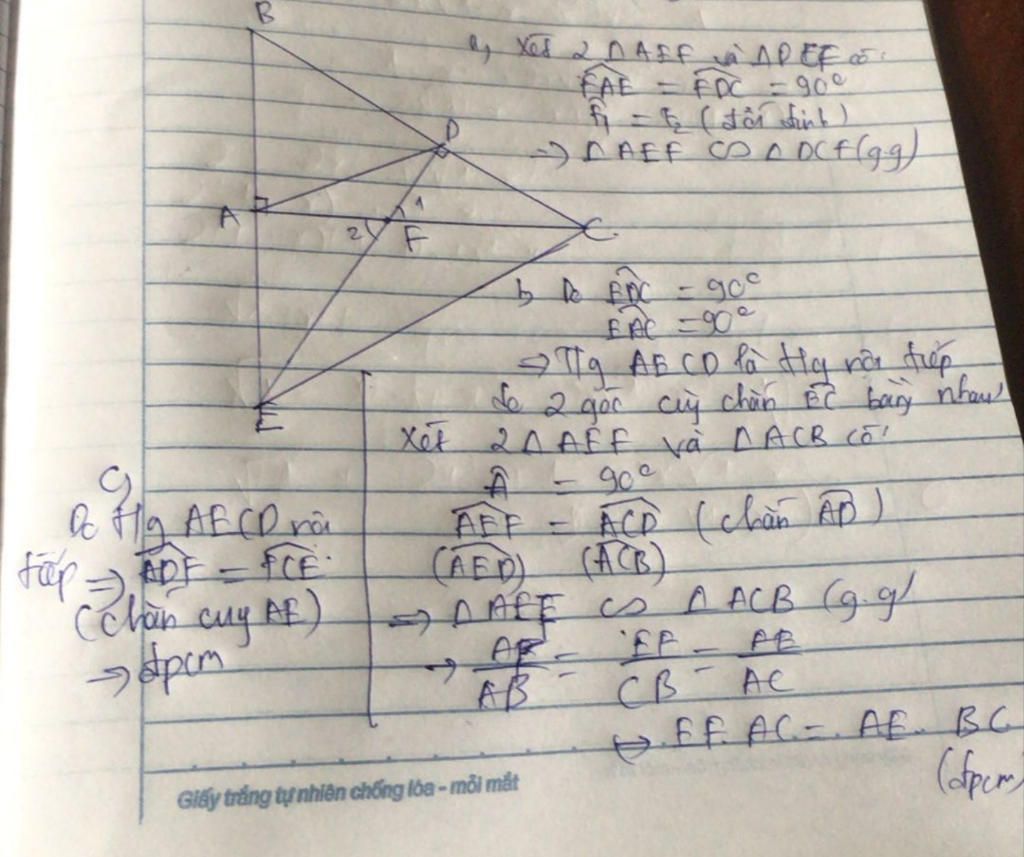 B
D
A
1
2
F
C
E
a, Xét 2 △AEF và △DEF có:
FAE = FDC = 90°
F1 = F2 (đối đỉnh)
=> △AEF ∽ △DCF (g.g)
b Do EDC = 90°
EAC = 90°
=> Tg AECD là tg nội tiếp
do 2 góc cùng chắn EC bằng nhau
Xét 2△AEF và △ACB có:
A = 90°
AEF = ACD (chắn AD)
(AED) (ACB)
=> △AEF ∽ △ACB (g.g)
-> AF/AB = EF/CB = AE/AC
<=> EF.AC = AE.BC
(đpcm)
c,
Do tg AECD nội
tiếp => ADF = FCE
(chắn cung AE)
=> đpcm
Giấy trắng tự nhiên chống lóa - mỏi mắt